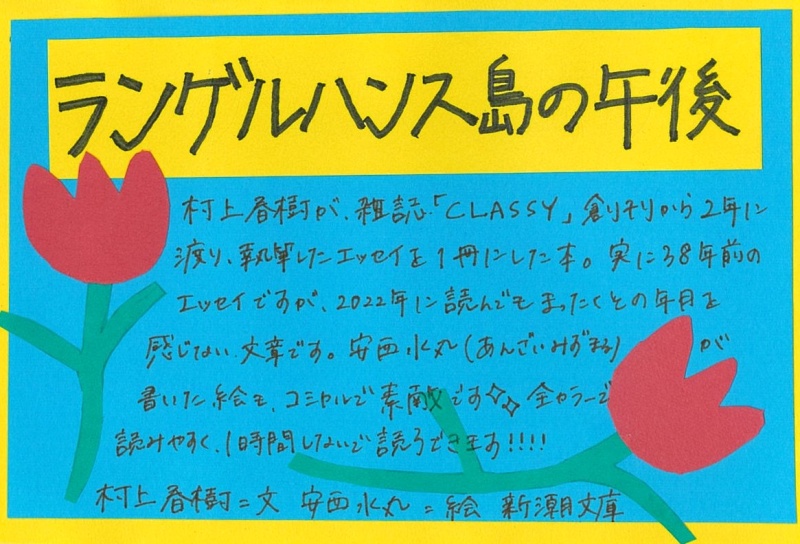 ランゲルハンス島の午後
村上春樹が、雑誌「CLASSY」創刊から2年に
渡り、執筆したエッセイを1冊にした本。実に38年前の
エッセイですが、2022年に読んでもまったくその年月を
感じない文章です。安西水丸(あんざいみずまる)が
書いた絵も、コミカルで素敵です 全カラーで
読みやすく、1時間しないで読了できます!!!!
村上春樹=文 安西水丸=絵 新潮文庫